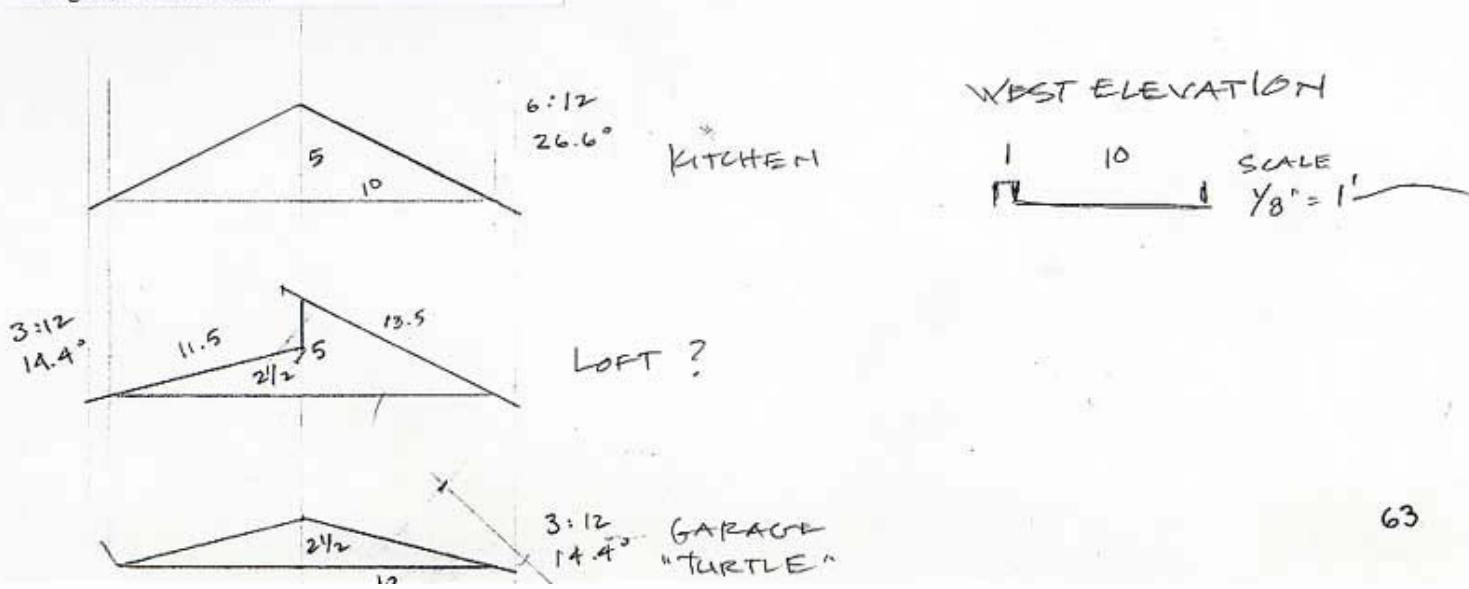 6:12
26.6°
KITCHEN
5
10
WEST ELEVATION
1 10
SCALE
1/8" = 1'
3:12
14.4°
11.5
13.5
5
2 1/2
LOFT ?
3:12
14.4°
GARAGE
"TURTLE"
2 1/2
63